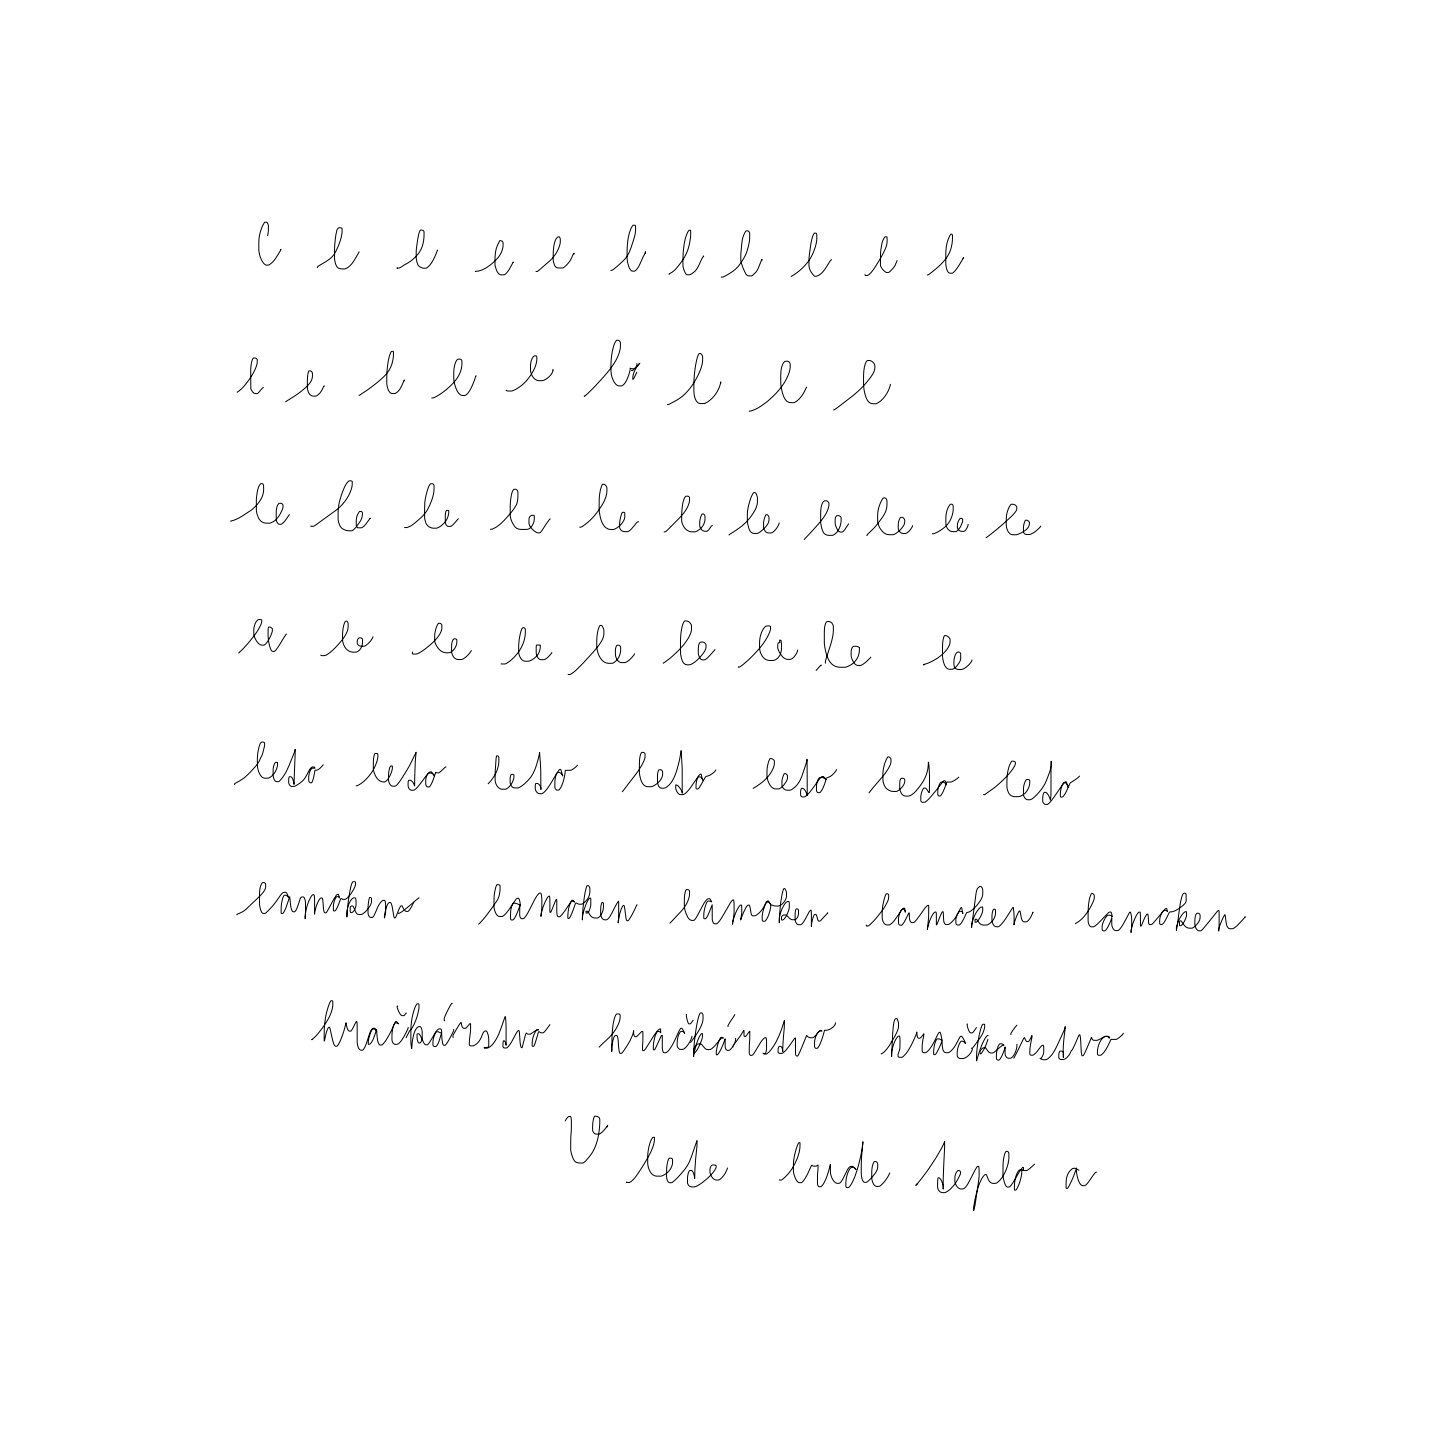 l l l l l l l l l l l
l l l l l l l l l
le le le le le le le le le le le
le le le le le le le le le
leto leto leto leto leto leto leto
lamoken lamoken lamoken lamoken lamoken
hračkárstvo hračkárstvo hračkárstvo
V lete bude teplo a